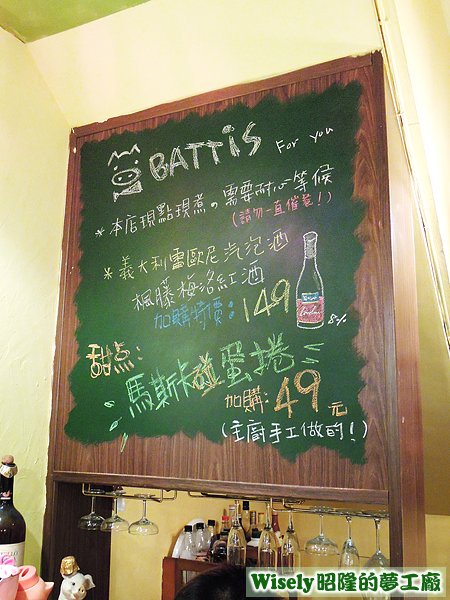 BATTiS For you
*本店現點現煮。需要耐心等候
(請勿一直催菜!)
*義大利雷歐尼汽泡酒
楓藤梅洛紅酒
加購特價:149
8%
甜点:
馬斯卡碰蛋捲
加購:49元
(主廚手工做的!)
Wisely昭隆的夢工廠